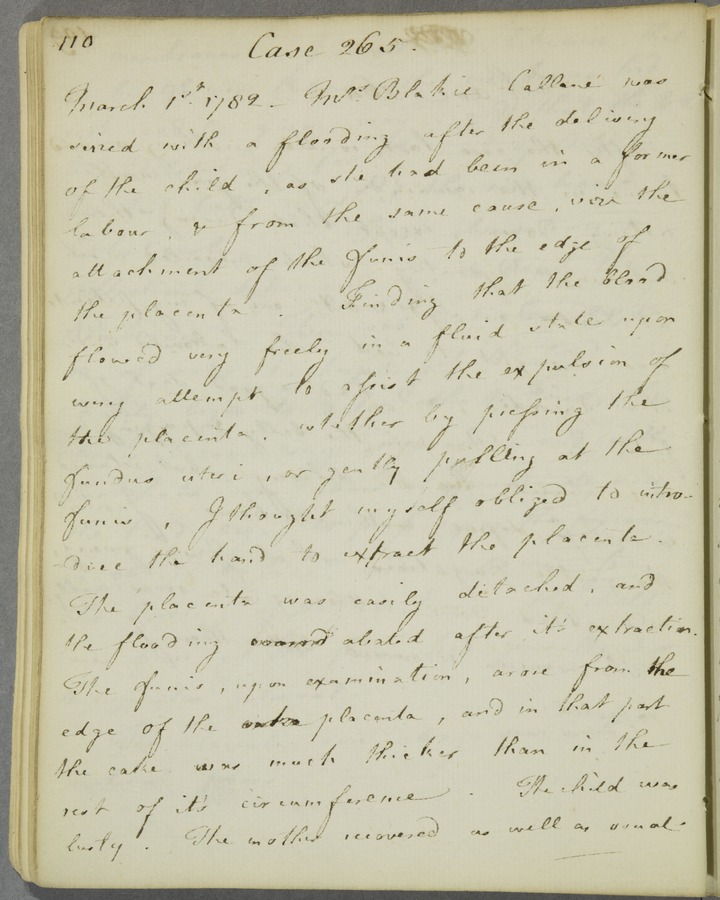 110
Case 265.
March 1st. 1782 - Mrs Blakie Calland was
seized with a flooding after the delivery
of the child, as she had been in a former
labour, & from the same cause, viz the
attachment of the funis to the edge of
the placenta. Finding that the blood
flowed very freely in a fluid state upon
every attempt to assist the expulsion of
the placenta, whether by pressing the
fundus uteri, or gently pulling at the
funis, I thought myself obliged to intro-
duce the hand to extract the placenta.
The placenta was easily detached, and
the flooding abated after it's extraction.
The funis, upon examination, arose from the
edge of the placenta, and in that part
the cake was much thicker than in the
rest of it's circumference. The child was
lusty. The mother recovered as well as usual.